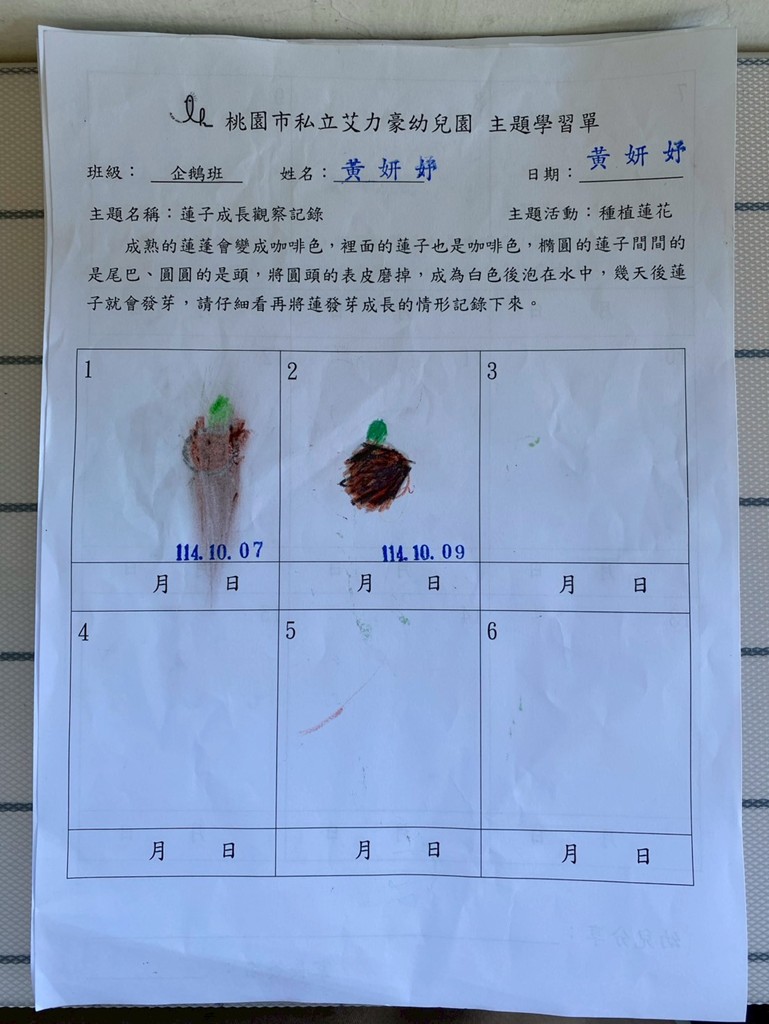 桃園市私立艾力豪幼兒園 主題學習單
班級： 企鵝班 姓名：黃妍妤 日期：黃妍妤
主題名稱：蓮子成長觀察記錄 主題活動：種植蓮花
成熟的蓮蓬會變成咖啡色，裡面的蓮子也是咖啡色，橢圓的蓮子間間的
是尾巴、圓圓的是頭，將圓頭的表皮磨掉，成為白色後泡在水中，幾天後蓮
子就會發芽，請仔細看再將蓮發芽成長的情形記錄下來。
1 2 3
114.10.07 114.10.09
月 日 月 日 月 日
4 5 6
月 日 月 日 月 日